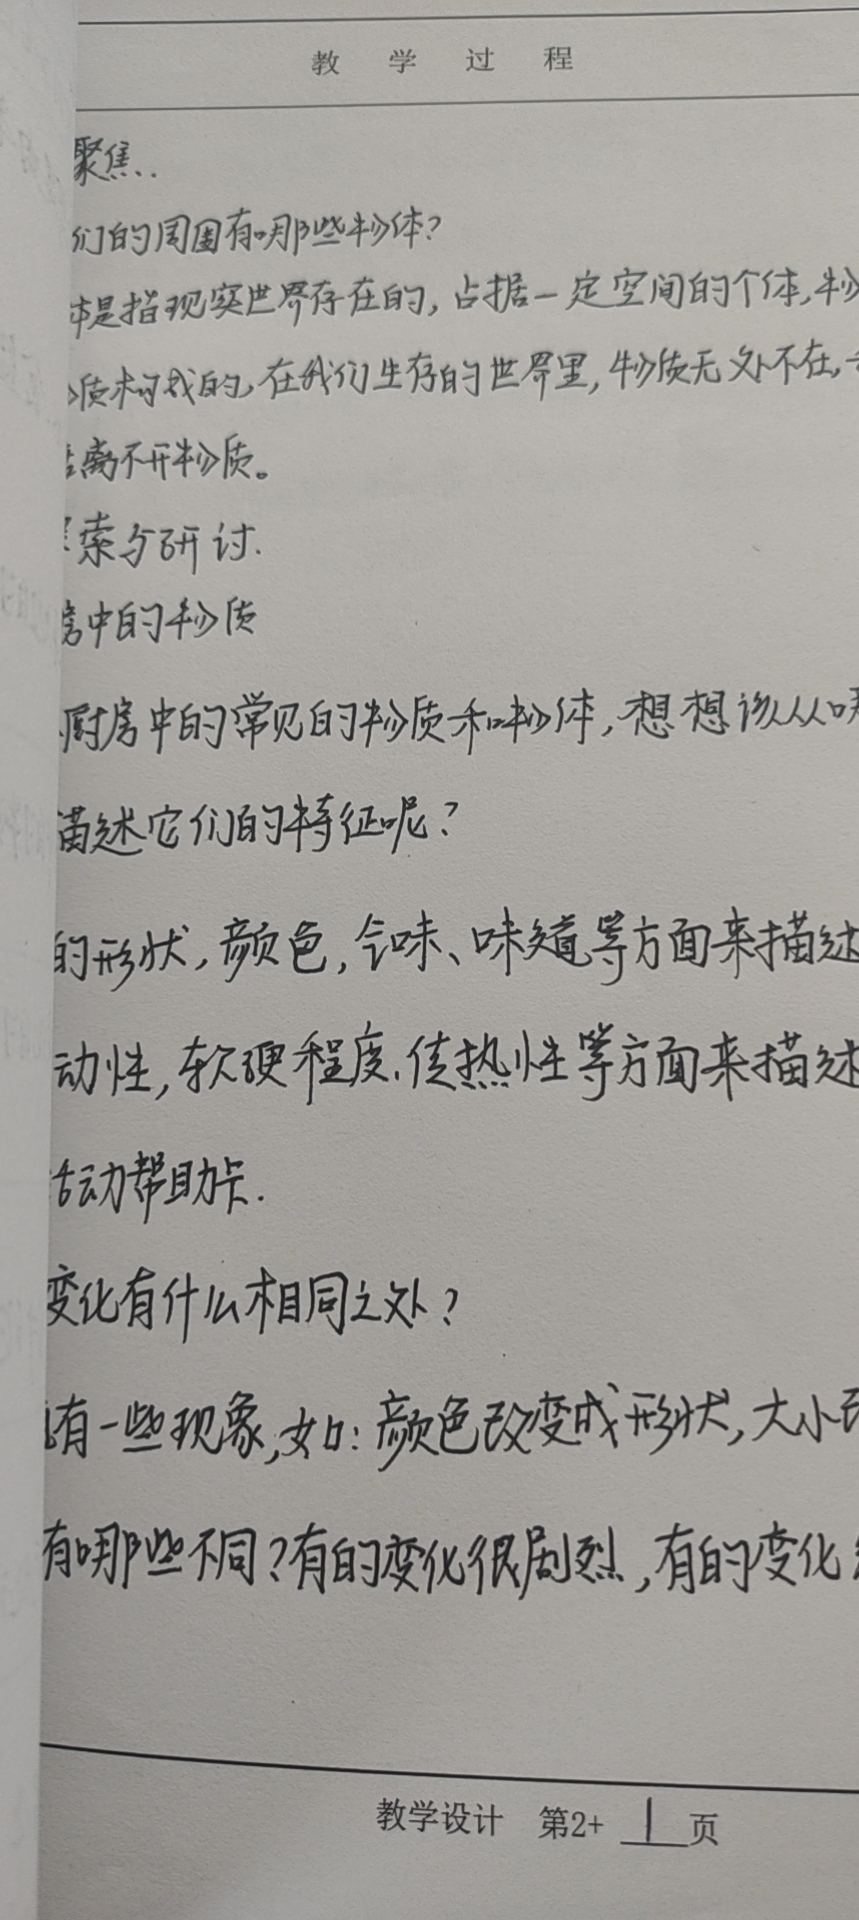 教学过程
聚焦..
们的周围有哪些物体?
体是指现实世界存在的,占据一定空间的个体,物
质构成的,在我们生存的世界里,物质无处不在,
离不开物质。
索与研讨.
房中的物质
厨房中的常见的物质和物体,想想该从哪
描述它们的特征呢?
的形状,颜色,气味、味道等方面来描述
动性,软硬程度.传热性等方面来描述
活动帮助卡.
变化有什么相同之处?
有一些现象,如:颜色改变或形状,大小改
有哪些不同?有的变化很剧烈,有的变化
教学设计 第2+ 1 页